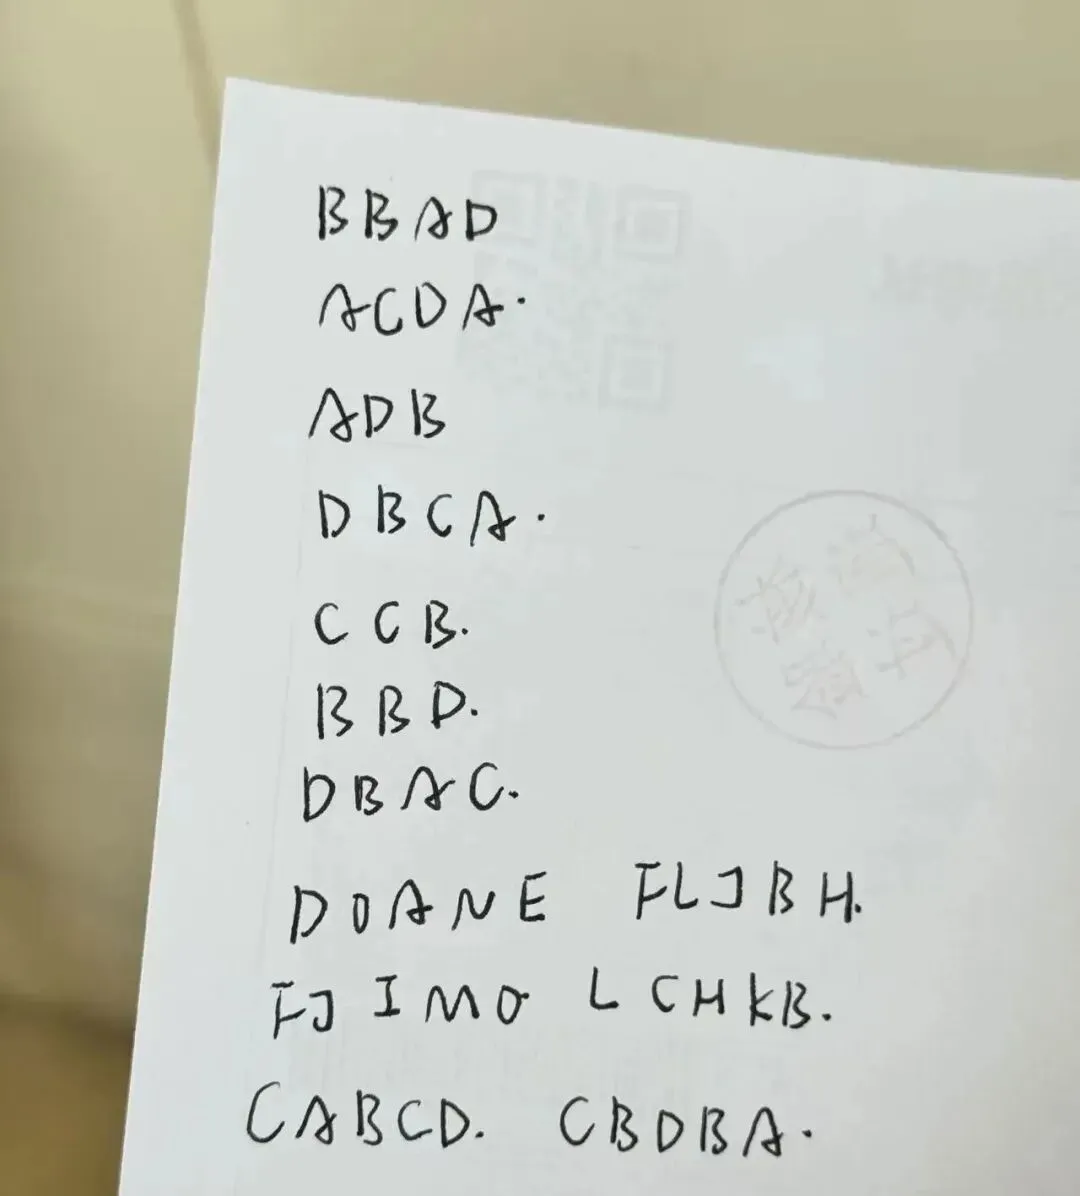 BBAD
ACDA.
ADB
DBCA.
CCB.
BBD.
DBAC.
DOANE FLJBH.
FJIMO LCHKB.
CABCD. CBDBA.